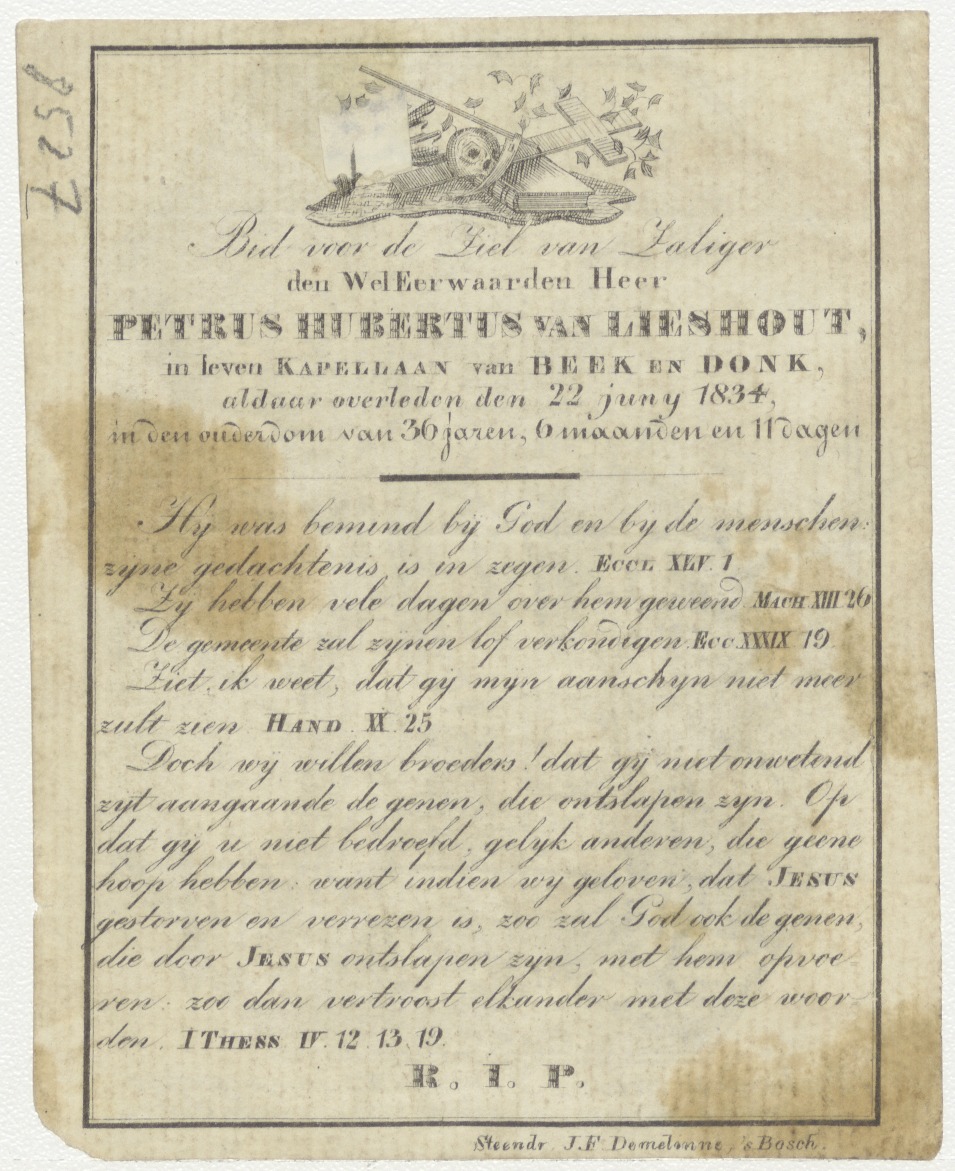 7527
Bid voor de Ziel van Zaliger
den WelEerwaarden Heer
PETRUS HUBERTUS VAN LIESHOUT,
in leven KAPELLAAN van BEEK EN DONK,
aldaar overleden den 22 juny 1834,
in den ouderdom van 36 jaren, 6 maanden en 11 dagen
Hy was bemind bij God en by de menschen:
zyne gedachtenis is in zegen. ECCL XLV. 1
Zy hebben vele dagen over hem geweend. MACH XIII 26
De gemeente zal zijnen lof verkondigen. ECC. XXXIX 19
Ziet, ik weet, dat gij myn aanschyn niet meer
zult zien HAND. XX. 25
Doch wij willen broeders! dat gij niet onwetend
zyt aangaande de genen, die ontslapen zyn. Op
dat gij u niet bedroefd, gelyk anderen, die geene
hoop hebben: want indien wij geloven, dat JESUS
gestorven en verrezen is, zoo zal God ook de genen,
die door JESUS ontslapen zyn, met hem opvoe-
ren: zoo dan vertroost elkander met deze woor-
den. I THESS IV. 12. 13. 19.
R. I. P.
Steendr. J. F. Demelinne, 's Bosch.